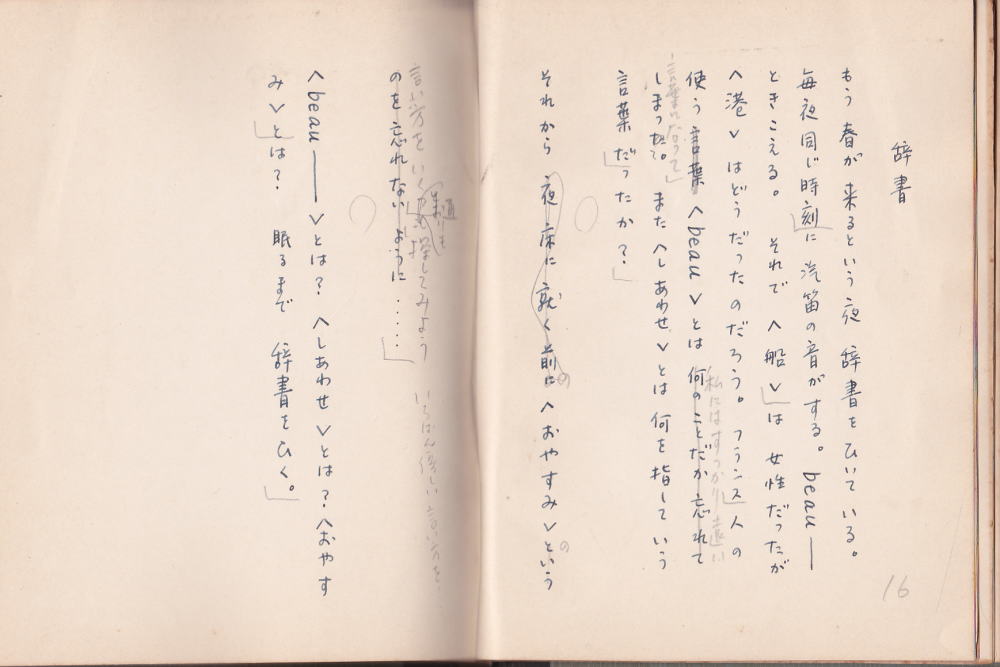 辞書
もう 春が 来るという 夜 辞書を ひいている。
毎夜 同じ時刻に 汽笛の音がする。 beau——
ときこえる。 それで 〈船〉は 女性だったが
〈港〉はどうだったのだろう。 フランス人の
使う 言葉〈beau〉とは 何のことだか 忘れて
私にはすっかり遠い
しまった。 また〈しあわせ〉とは 何を 指していう
言葉になって
言葉 だったか?
それから 夜 床に 就く 前に〈おやすみ〉という
の
の
言い方を いく通りも 探してみよう いちばん優しい 言い方を
のを 忘れないように……
〈beau——〉とは? 〈しあわせ〉とは? 〈おやす
み〉とは? 眠るまで 辞書を ひく。
16